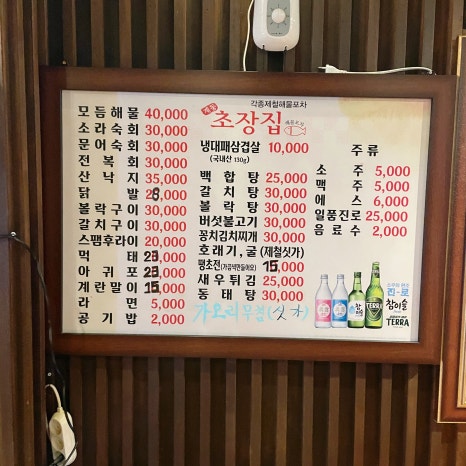 각종제철해물포차
초장집
모듬해물 40,000
소라숙회 30,000
문어숙회 30,000
전복회 30,000
산낙지 35,000
닭발 28,000
볼락구이 30,000
갈치구이 30,000
스팸후라이 20,000
먹태 23,000
아귀포 23,000
계란말이 15,000
라면 5,000
공기밥 2,000
냉대패삼겹살 10,000
(국내산 130g)
백합탕 25,000
갈치탕 30,000
볼락탕 30,000
버섯불고기 30,000
꽁치김치찌개 30,000
호래기,굴 (제철싯가)
땡초전 15,000
새우튀김 25,000
동태탕 30,000
가오리무침(싯가)
주류
소주 5,000
맥주 5,000
에스 6,000
일품진로 25,000
음료수 2,000
진로
참이슬
TERRA